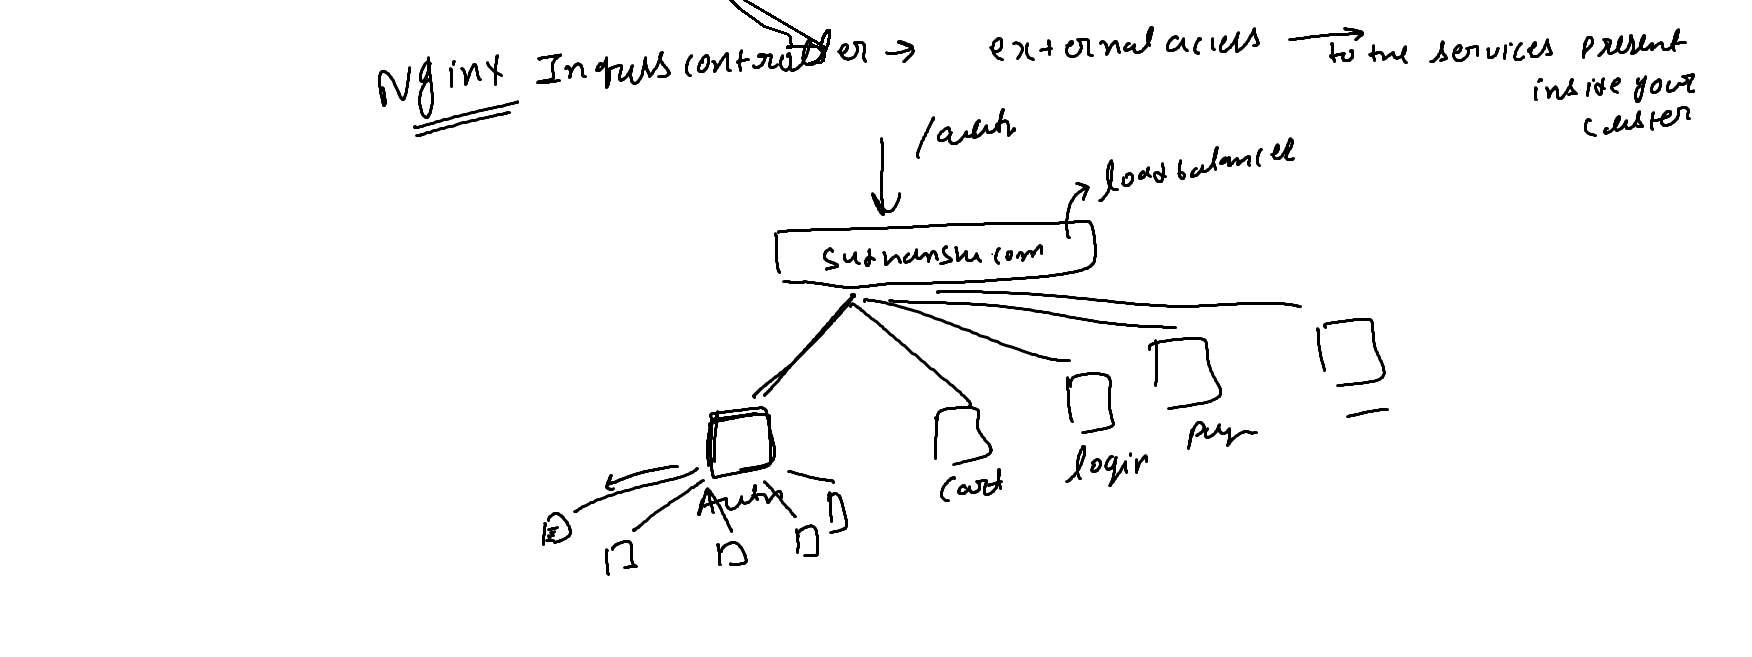 Nginx Ingress controller → external access → to the services present
inside your
cluster
/auth
loadbalancer
sudhanshu.com
Auth
Cart
login
Pay